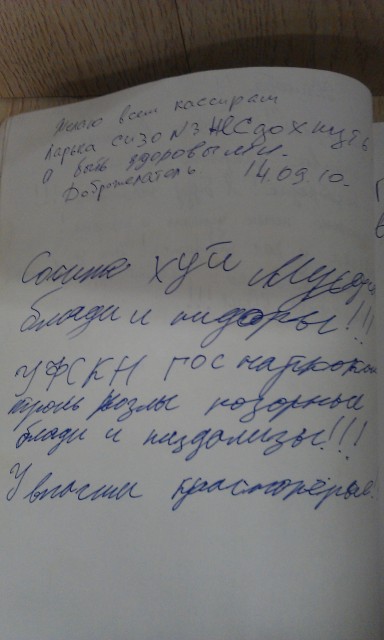 Желаю всем кассирам
Ларька СИЗО №3 НЕ сдохнуть
А быть здоровыми.
Доброжелатель. 14.09.10.
Сосите хуй Мусора
бляди и пидоры!!!
УФСКН ГОС нарко
троль козлы позорные
бляди и пиздализы!!!
У власти краснопёрые.